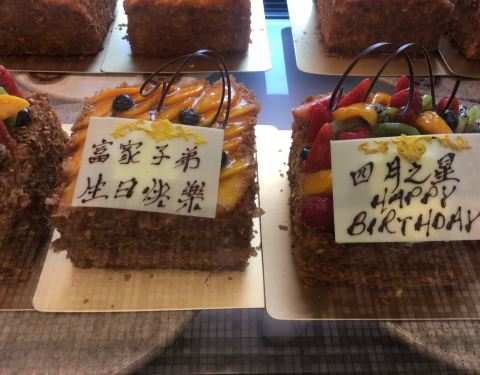 富家子弟
生日快樂
四月之星
HAPPY
BIRTHDAY